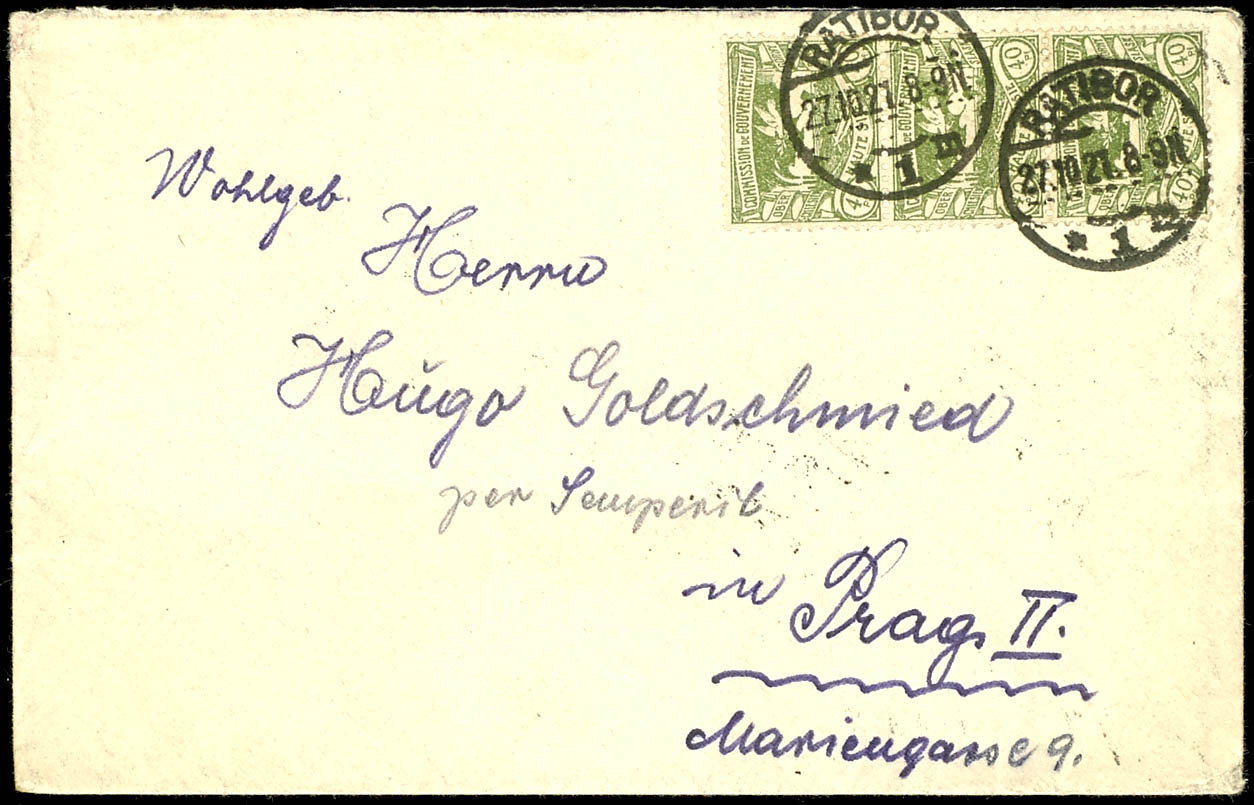 RATIBOR
27.10.21. 8-9N
* 1 m
RATIBOR
27.10.21. 8-9N
* 1
COMMISSION DE GOUVERNEMENT
HAUTE
OBER
40
Wohlgeb.
Herrn
Hugo Goldschmied
per Semperit
in Prag II.
Mariengasse 9.